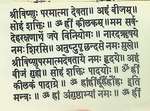 श्रीविष्णुः परमात्मा देवता। अहं बीजम्।
सोहं शक्तिः। ॐ ह्रीं कीलकम्। मम सर्व-
देहरक्षणार्थं जपे विनियोगः। नारदऋषये
नमः शिरसि। अनुष्टुप्छन्दसे नमो मुखे।
श्रीविष्णुपरमात्मादेवतायै नमः हृदये। अहं
बीजं गुह्ये। सोहं शक्तिः पादयोः। ॐ ह्रीं
कीलकं पादाग्रे। ॐ इति
मन्त्रः। ॐ ह्रां अंगुष्ठाभ्यां नमः। ॐ